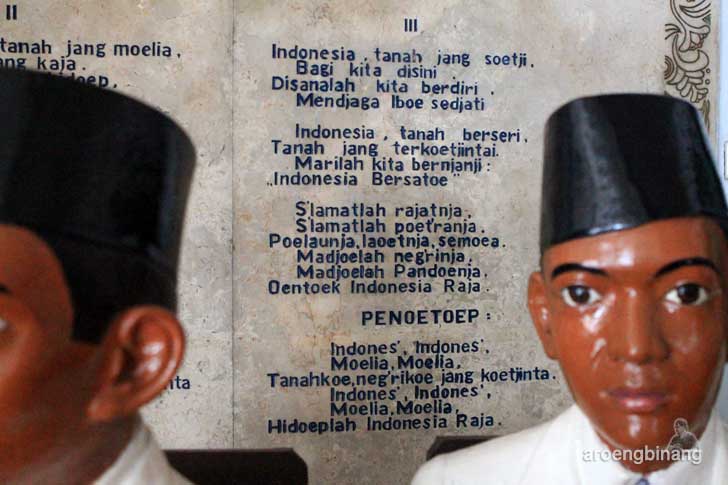 II
tanah jang moelia,
kaja.
III
Indonesia, tanah jang soetji,
Bagi kita disini.
Disanalah kita berdiri,
Mendjaga Iboe sedjati
Indonesia, tanah berseri,
Tanah jang terkoetjintai.
Marilah kita bernjanji:
„Indonesia Bersatoe"
S'lamatlah rajatnja,
S'lamatlah poet'ranja.
Poelaunja, laoetnja, semoea.
Madjoelah neg'rinja,
Madjoelah Pandoenja,
Oentoek Indonesia Raja.
PENOETOEP:
Indones', Indones',
Moelia, Moelia,
Tanahkoe, neg'rikoe jang koetjinta.
Indones', Indones',
Moelia, Moelia,
Hidoeplah Indonesia Raja.
aroengbinang